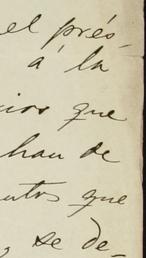 el prés-
á la
cios que
han de
entos que
, se de-